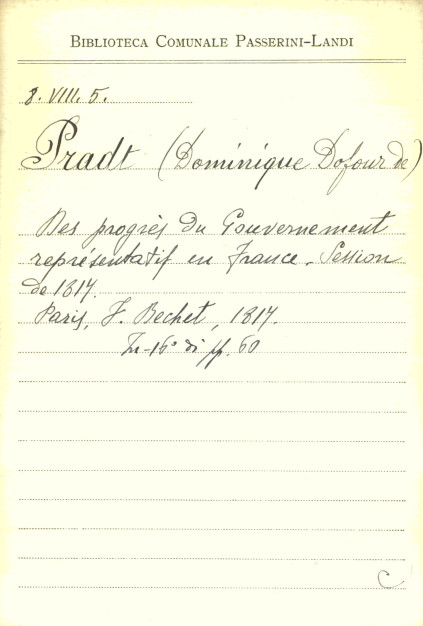 BIBLIOTECA COMUNALE PASSERINI-LANDI
8. VIII. 5.
Pradt (Dominique Dofour de)
Des progrès du Gouvernement
représentatif en France - Session
de 1817.
Paris, F. Bechet, 1817.
In-16° di pp. 60
C